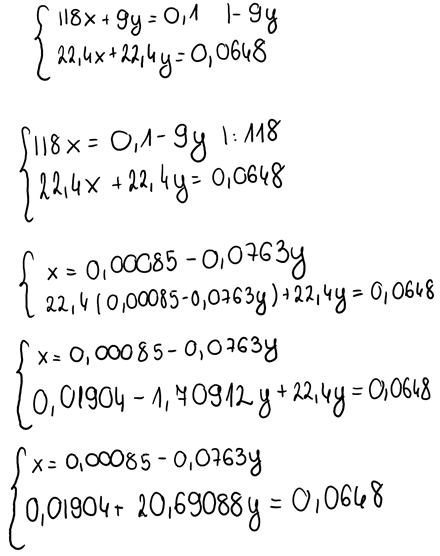 118x + 9y = 0,1 |- 9y
22,4x + 22,4y = 0,0648
118x = 0,1 - 9y |: 118
22,4x + 22,4y = 0,0648
x = 0,00085 - 0,0763y
22,4(0,00085-0,0763y)+22,4y = 0,0648
x = 0,00085 - 0,0763y
0,01904 - 1,70912y + 22,4y = 0,0648
x = 0,00085 - 0,0763y
0,01904 + 20,69088y = 0,0648